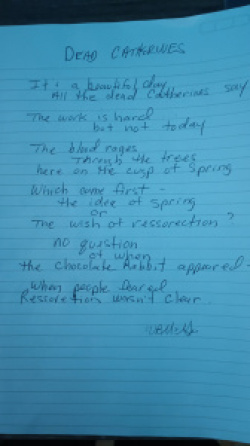 DEAD CATHERINES
It's a beautiful day
All the dead Catherines say
The work is hard
but not today
The blood rages
Through the trees
here on the cusp of spring
Which came first -
the idea of spring
or
The wish of ressorection?
no question
of when
the Chocolate Rabbit appeared -
When people feared
Ressorection wasn't clear